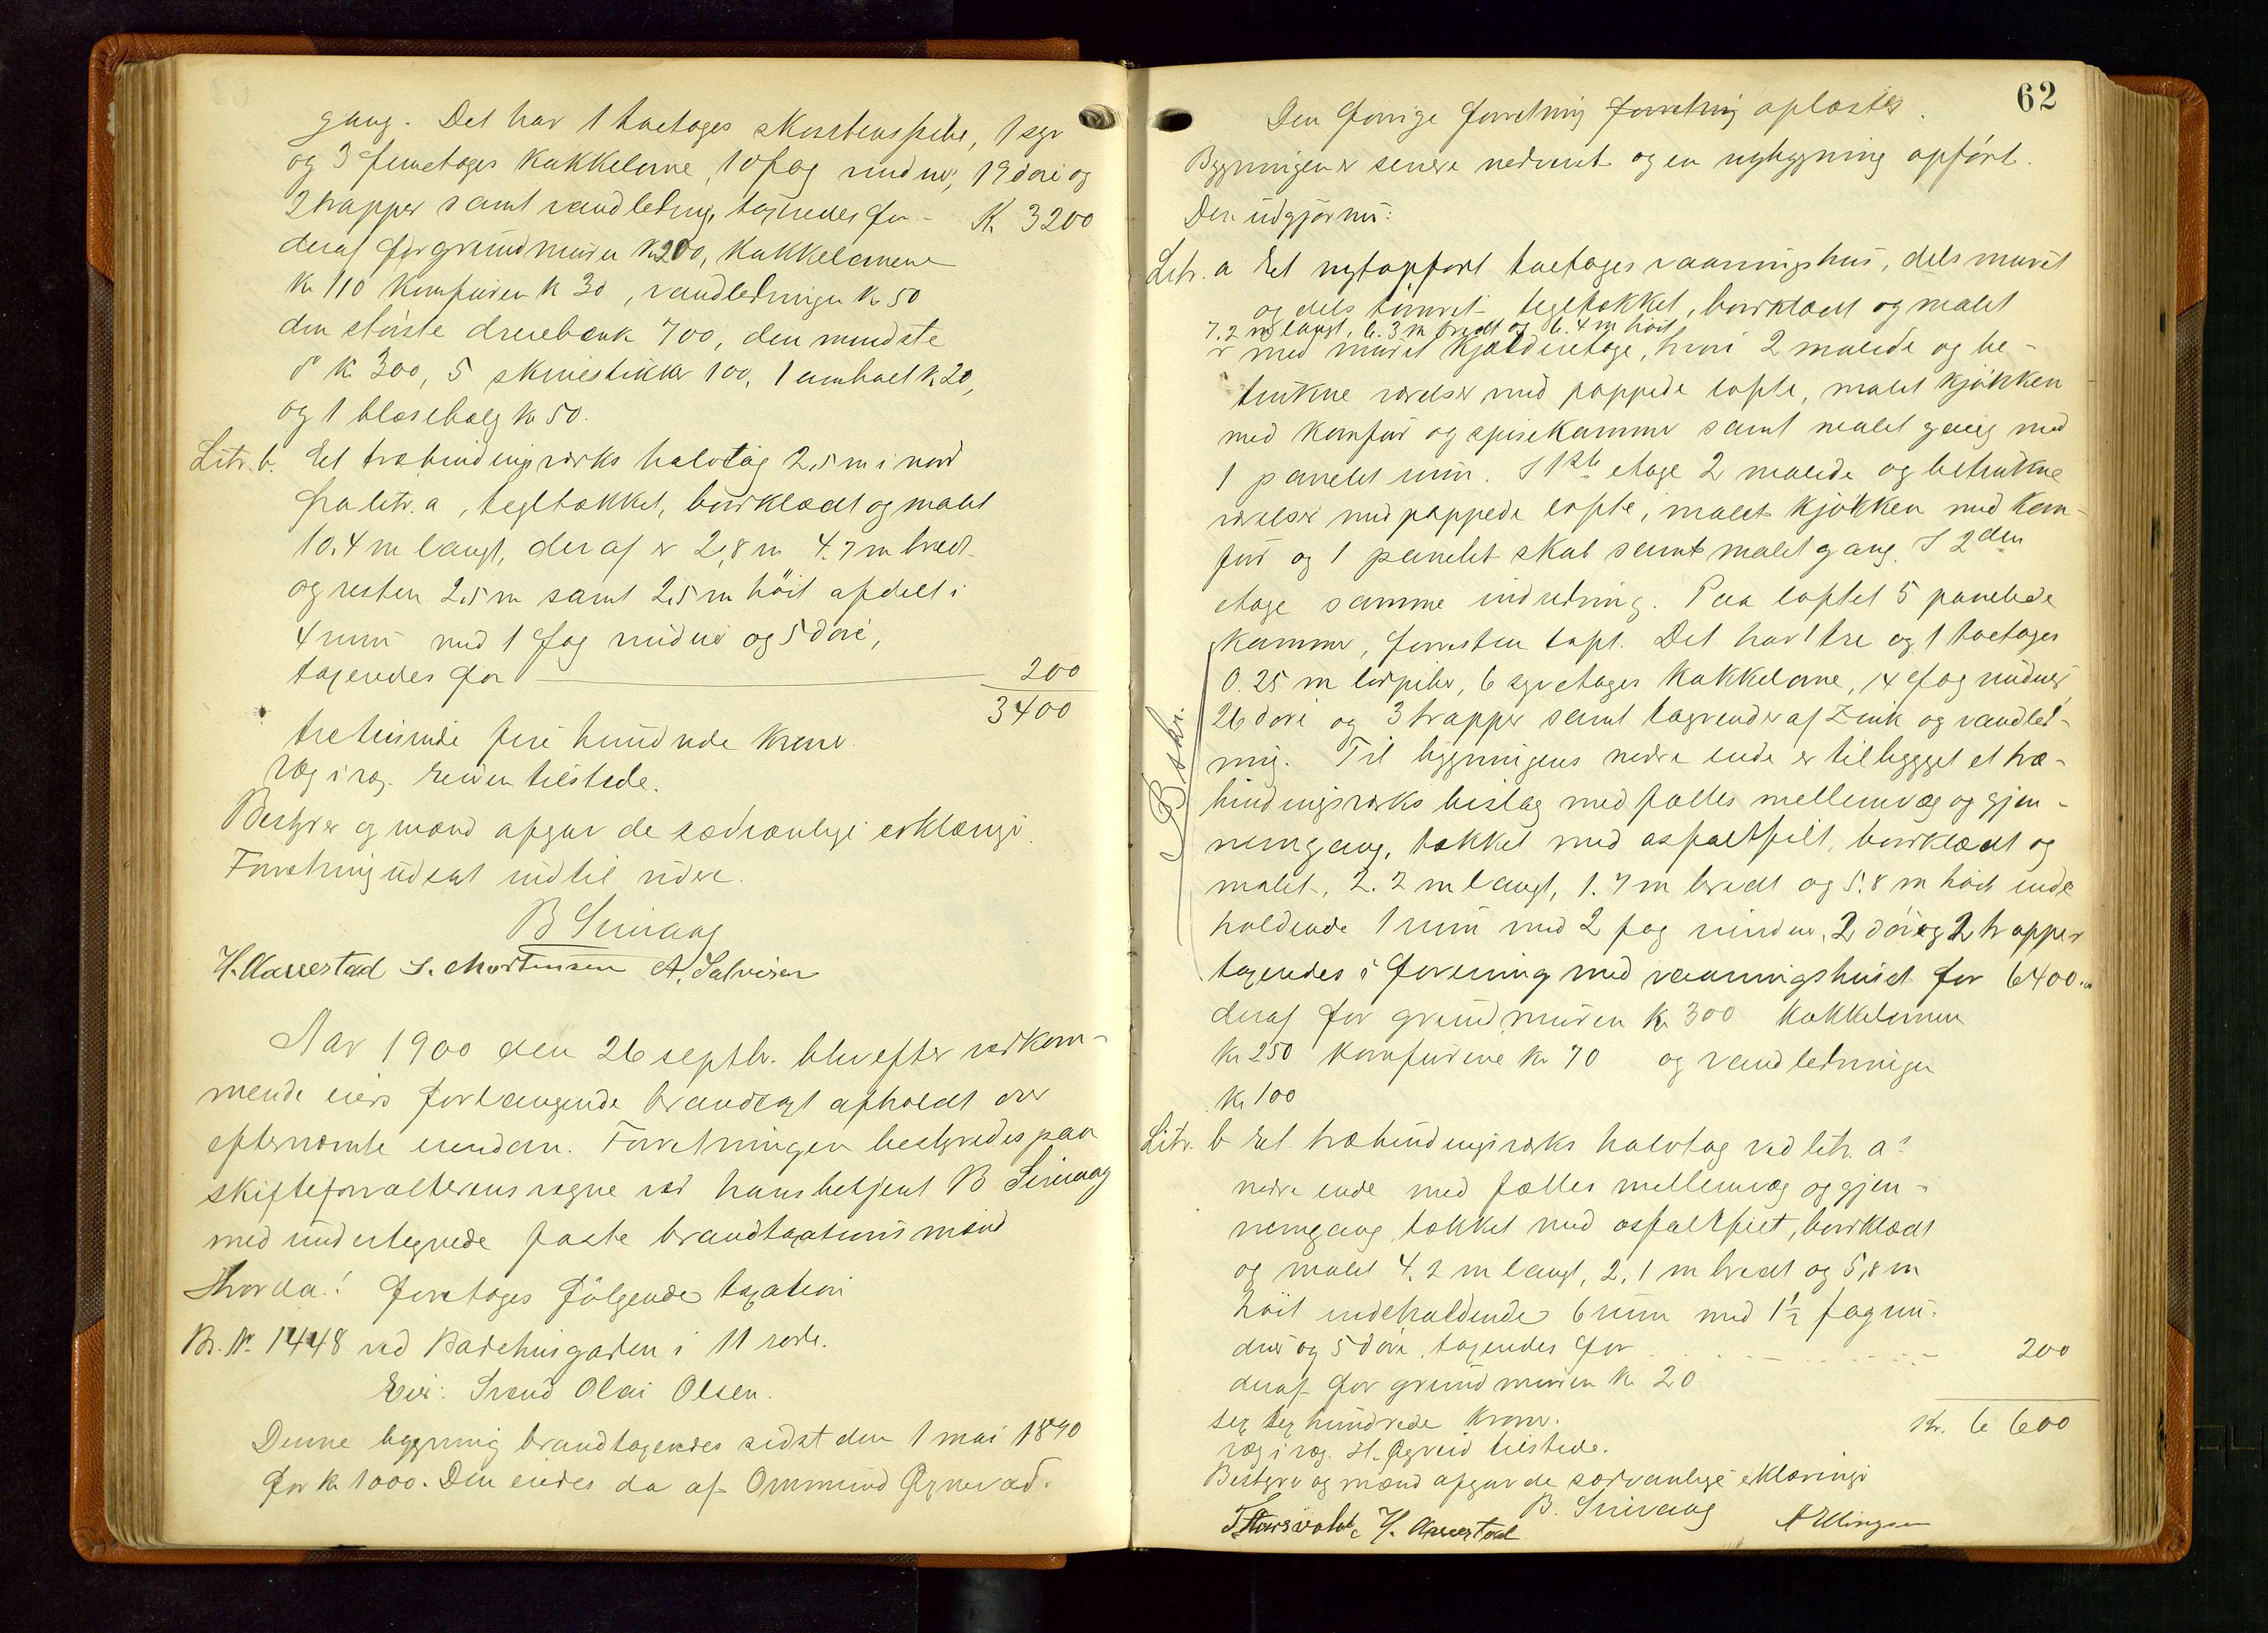 gang. Det har 1 toetages skorstenspibe, 1 syv
og 3 femetages kakkelovne, 10 fag vinduer, 19 döre og
2 trapper samt vandledning, taxeredes for - Kr 3200
deraf for grundmuren kr 200, kakkelovnene
kr 110 komfuren kr 30, vandledningen kr 50
den störste dreiebænk 700, den mindste
do kr 300, 5 skruestikker 100, 1 ambolt kr 20,
og 1 blæsebælg kr 50.
Litr. b. Et træbindingsværks halvtag 2,5 m i nord
fra litr. a, tegltækket, bordklædt og malet
10.4 m langt, deraf er 2,8 m 4.7 m bredt
og resten 2,5 m samt 2,5 m höit afdelt i
4 rum med 1 fag vinduer og 5 döre,
taxeredes for 200
3400
tretusinde fire hundrede kroner.
Væg i væg. Eieren tilstede.
Bestyrer og mænd afgav de sædvanlige erklæringer.
Forretning udsat indtil videre.
B Sirevaag
H. Aarrestad S. Mortensen A. Salvesen
Aar 1900 den 26 septbr. blev efter vedkom-
mende eiers forlangende brandtaxt afholdt over
efternævnte eiendom. Forretningen bestyredes paa
skifteforvalterens vegne ved hans betjent B Sirevaag
med undertegnede faste brandtaxationsmænd
Hvorda! foretoges fölgende taxation
Br. Nr. 1448 ved Badehusgaden i 11 rode.
Eier: Svend Olai Olsen.
Denne bygning brandtaxeredes sidst den 1 mai 1890
for kr 1000. Den eiedes da af Ommund
62
Den forrige forretning forretning oplæstes.
Bygningen er senere nedrevet og en nybygning opfört.
Den udgjör nu:
Litr. a Et nyt opfört toetages vaaningshus, dels muret
og dels tömret tegltækket, bordklædt og malet
7.2 m langt, 6.3 m bredt og 6.4 m höit
med muret kjælderetage, hvori 2 malede og be-
trukne værelser med pappede lofte, malet kjökken
med komfur og spisekammer samt malet gang med
1 panelet rum. I 1ste etage 2 malede og betrukne
værelser med pappede lofte, malet kjökken med kom-
fur og 1 panelet skab samt malet gang. I 2den
etage samme indredning. Paa loftet 5 panelede
kammer, forresten loft. Det har 1 tre og 1 toetages
0.25 m lodpiber, 6 syvetages kakkelovne, 14 fag vinduer
26 döre og 3 trapper samt tagrender af zink og vandled-
ning. Til bygningens nedre ende er tilbygget et træ-
bindingsværks bislag med fælles mellemvæg og gjen-
nemgang, tækket med asfaltfilt, bordklædt og
malet, 2.2 m langt, 1.7 m bredt og 5.8 m höit inde
holdende 1 rum med 2 fag vinduer, 2 döre og 2 trapper
taxeredes i forening med vaaningshuset for 6400.
Beskr.
deraf for grundmuren kr 300 kakkelovnene
kr 250 komfurene kr 70 og vandledningen
kr 100
Litr. b Et træbindingsværks halvtag ved litr. a's
nedre ende med fælles mellemvæg og gjen-
nemgang, tækket med asfaltfilt, bordklædt
og malet 4.2 m langt, 2,1 m bredt og 5,8 m
höit indeholdende 6 rum med 1 1/2 fag vin-
duer og 5 döre, taxeredes for 200
deraf for grundmuren kr 20.
sex tusex hundrede kroner. Kr. 6 600
Væg i væg. H. tilstede.
Bestyrer og mænd afgav de sædvanlige erklæringer
B. Sirevaag
T. Thorsvoldt H. Aarrestad A Ellingsen